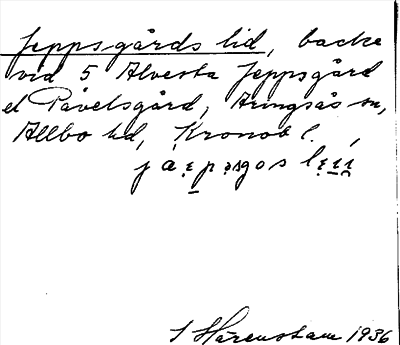 Jeppsgårds lid, backe
vid 5 Alvesta Jeppsgård
el Påvelsgård, Aringsås sn,
Allbo hd, Kronob l.
S Härenstam 1936